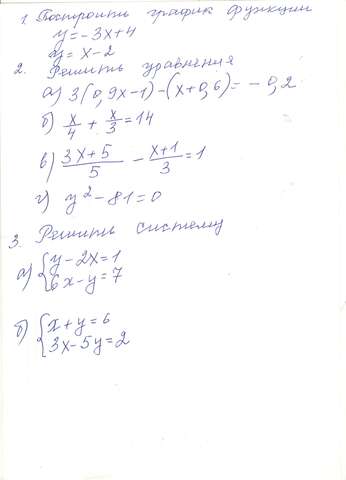 1. Построить график функции
y = -3x+4
y = x-2
2. Решить уравнения
а) 3(0,9x-1)-(x+0,6)= -0,2
б) x/4 + x/3 = 14
в) (3x+5)/5 - (x+1)/3 = 1
г) y² - 81 = 0
3. Решить систему
а) { y-2x=1
6x-y=7
б) { x+y=6
3x-5y=2